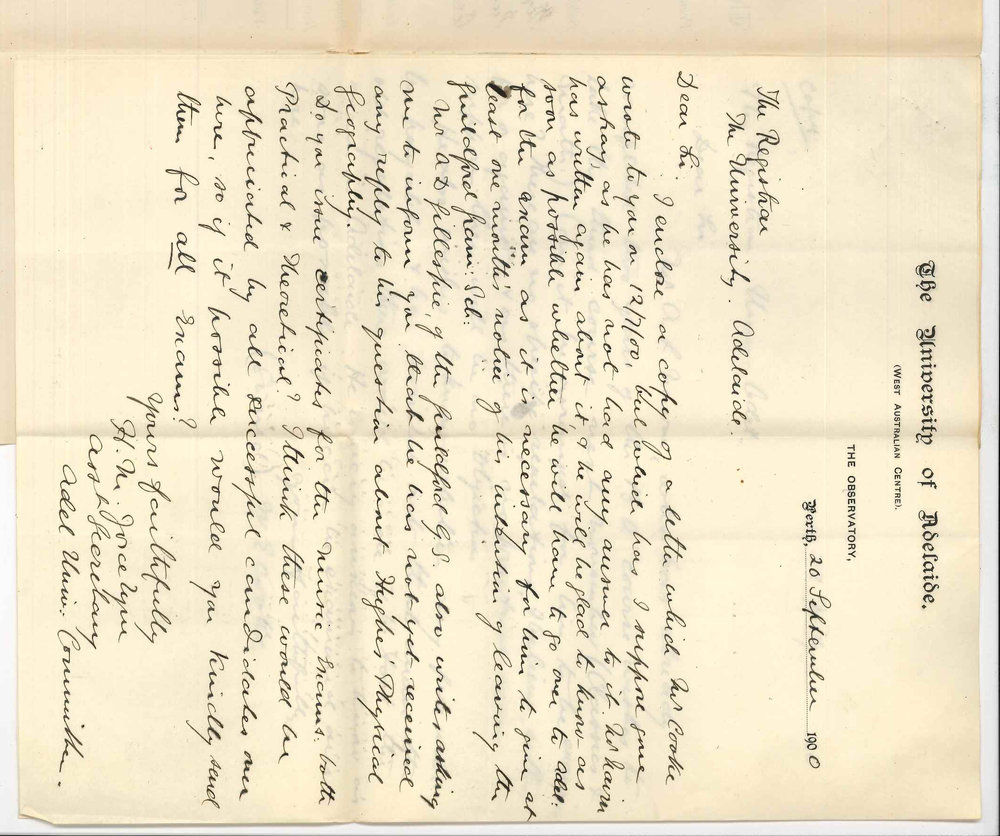 The University of Adelaide.
(WEST AUSTRALIAN CENTRE).
THE OBSERVATORY,
Perth, 20 September 1900
The Registrar
The University. Adelaide.
Dear Sir
I enclose a copy of a letter which Mr Cooke
wrote to you on 12/7/00, but which has I suppose gone
astray, as he has not had any answer to it. Mr
has written again about it & he will be glad to know as
soon as possible whether he will have to go over to Adel.
for the exam as it is necessary for him to give at
least one month's notice of his intention of leaving the
Guildford Gram: Sch:
Mr A D Gillespie, of the Guildford G.S. also writes asking
me to inform you that he has not yet received
any reply to his question about Hughes' Physical
Geography.
Do you issue certificates for the Music Exams: both
Practical & Theoretical? I think these would be
appreciated by all successful candidates over
here, so if it possible would you kindly send
them for all Exams?
Yours faithfully
H. M.
Asst Secretary
Adel Univ. Committee.